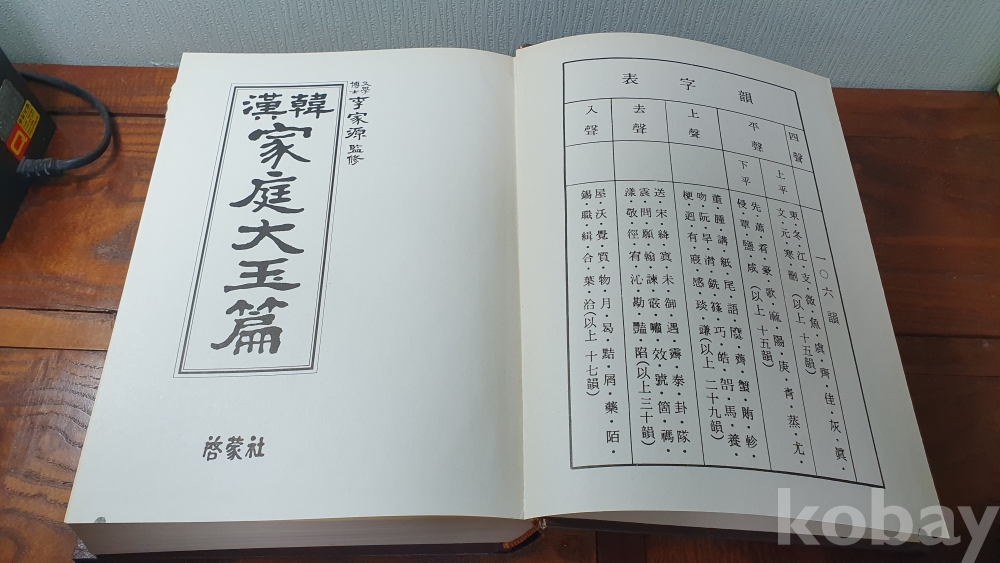 文學
博士
李家源 監修
韓漢
家庭大玉篇
啓蒙社
韻字表
四聲
一〇六韻
平聲
上平
東·冬·江·支·微·魚·虞·齊·佳·灰·眞·
文·元·寒·刪 (以上 十五韻)
下平
先·蕭·肴·豪·歌·麻·陽·庚·靑·蒸·尤·
侵·覃·鹽·咸 (以上 十五韻)
上聲
董·腫·講·紙·尾·語·麌·薺·蟹·賄·軫·
吻·阮·旱·潸·銑·篠·巧·皓·哿·馬·養·
梗·迥·有·寢·感·琰·豏(以上 二十九韻)
去聲
送·宋·絳·寘·未·御·遇·霽·泰·卦·隊·
震·問·願·翰·諫·霰·嘯·效·號·箇·禡·
漾·敬·徑·宥·沁·勘·豔·陷(以上三十韻)
入聲
屋·沃·覺·質·物·月·曷·黠·屑·藥·陌·
錫·職·緝·合·葉·洽(以上 十七韻)
kobay